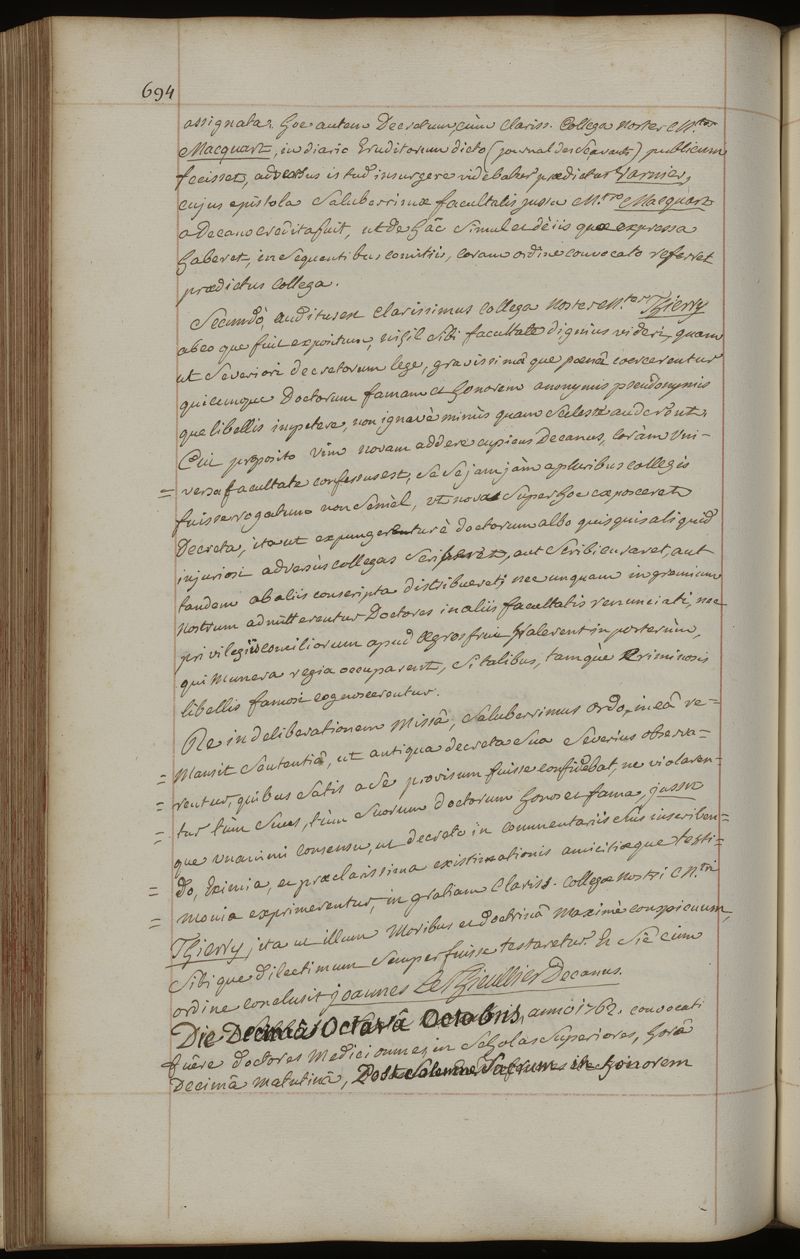 694
assignata. Hoc autem Decretum, cùm Clariss. Collega noster M.ter
Macquart, in diario Eruditorum dicto (journal des Sçavants) publicum
fecisset, adversus istud insurgere videbatur prædictus Garnier,
cujus epistola Saluberrimæ facultatis jussu M.tro Macquart
a Decano credita fuit, ut de hâc simul et de iis quæ expressa
haberet, in sequentibus comitiis, coram ordine convocato referret
prædictus Collega.
Secundò, auditus est Clarissimus Collega noster M.ter Thierry
ab eo que fuit expositum, nihil sibi facultate dignius videri, quam
ut Severiori decretorum lege, gravissimâ que pœnâ coercerentur
quicumque Doctorum famam et honorem anonymis pseudonymis
que libellis impetere, non ignavè minùs quam scelestè auderent.
Cui proposito vim novam addere cupiens Decanus, Coràm Uni-
= versa facultate confessus est, se se jam jàm a pluribus collegis
fuisse rogatum non semèl, ut nova super hoc exposceret
Decreta, ita ut expungerentur è doctorum albo quisquis aliquid
injuriosi adversùs collegas scriberet, aut scribi curaret, aut
tandem ab aliis conscripta distribueret; nec unquam in gremium
nostrum admitterentur Doctores in aliis facultatis renunciati, nec
privilegiis conciliorum apud ægros frui valerent in posterùm,
qui munera regia occuparent, si talibus, tamque criminosis
libellis famosi cognoscerentur.
Re in deliberationem missâ, Saluberrimus ordo, in eâ re=
= mansit Sententiâ, ut antiqua decreta sua Severius observa=
= rentur, quibus satis a se provisum fuisse confidebat, ne violaren=
= tur tùm suus, tùm suorum doctorum honos et fama, jussit
que unanimi consensu, ut decreto in commentariis ejus inscriben=
= do, Eximia, et præclarissima existimationis amicitiæque testi=
= monia exprimerentur, in gratiam Clariss. Collegæ nostri M.tri
Thierry, ita ut illum moribus et doctrinâ maximè conspicuum,
sibi que dilectissimum semper fuisse testaretur. Et sic cum
ordine conclusit joannes Le Thieullier Decanus.
Die Decimâ Octavâ Octobris, anno 1762. convocati
fuêre doctores Medici omnes, in Scholas Superiores, horâ
Decimâ matutinâ, Post Solemne Sacrum in honorem